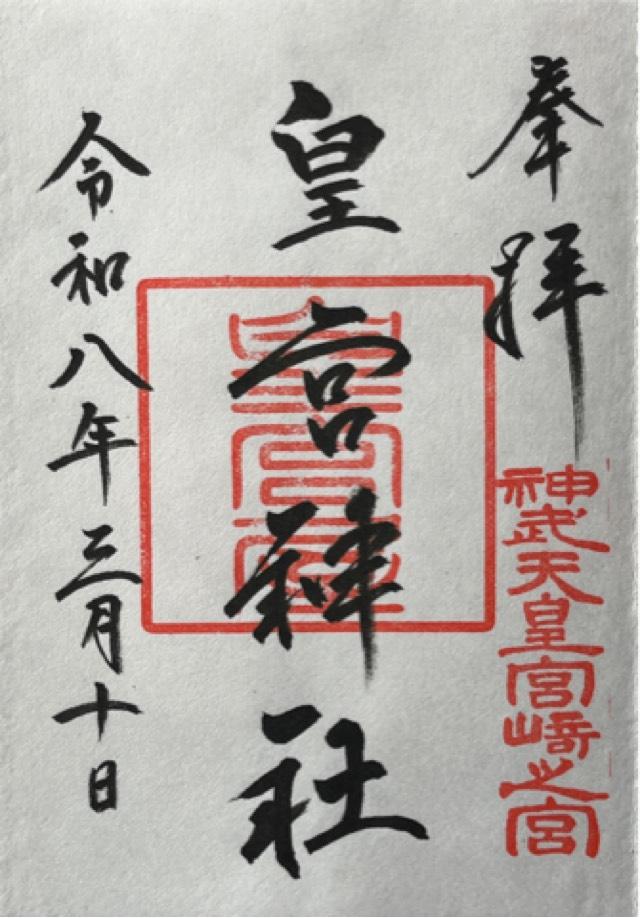 奉拝
神武天皇宮崎之宮
皇宮神社
皇宮屋
令和八年三月十日